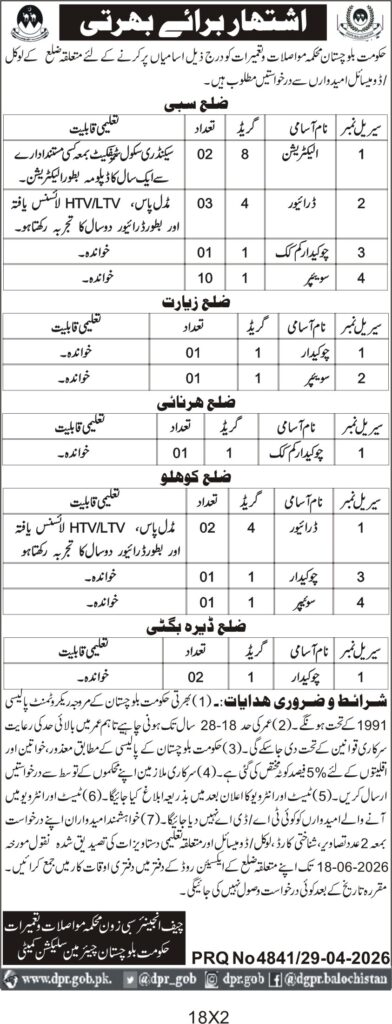 اشتہار برائے بھرتی
حکومت بلوچستان محکمہ مواصلات و تعمیرات کو درج ذیل اسامیاں پر کرنے کے لئے متعلقہ ضلع کے لوکل
/ ڈومیسائل امیدواروں سے درخواستیں مطلوب ہیں۔
ضلع سبی
سیریل نمبر نام آسامی گریڈ تعداد تعلیمی قابلیت
1 الیکٹریشن 8 02 سیکنڈری سکول سرٹیفکیٹ بمعہ کسی مستند ادارے
سے ایک سال کا ڈپلومہ بطور الیکٹریشن۔
2 ڈرائیور 4 03 مڈل پاس، HTV/LTV لائسنس یافتہ
اور بطور ڈرائیور دو سال کا تجربہ رکھتا ہو۔
3 چوکیدار کم کک 1 01 خواندہ۔
4 سویپر 1 10 خواندہ۔
ضلع زیارت
سیریل نمبر نام آسامی گریڈ تعداد تعلیمی قابلیت
1 چوکیدار 1 01 خواندہ۔
2 سویپر 1 01 خواندہ۔
ضلع ہرنائی
سیریل نمبر نام آسامی گریڈ تعداد تعلیمی قابلیت
1 چوکیدار کم کک 1 01 خواندہ۔
ضلع کوہلو
سیریل نمبر نام آسامی گریڈ تعداد تعلیمی قابلیت
1 ڈرائیور 4 02 مڈل پاس، HTV/LTV لائسنس یافتہ
اور بطور ڈرائیور دو سال کا تجربہ رکھتا ہو
3 چوکیدار 1 01 خواندہ۔
4 سویپر 1 01 خواندہ۔
ضلع ڈیرہ بگٹی
سیریل نمبر نام آسامی گریڈ تعداد تعلیمی قابلیت
1 چوکیدار 1 02 خواندہ۔
شرائط و ضروری ھدایات:۔ (1) بھرتی حکومت بلوچستان کے مروجہ ریکروٹمنٹ پالیسی
1991 کے تحت ہونگے۔ (2) عمر کی حد 18-28 سال تک ہونی چاہیے تاہم عمر میں بالائی حد کی رعایت
سرکاری قوانین کے تحت دی جاسکے گی۔ (3) حکومت بلوچستان کے پالیسی کے مطابق معذور، خواتین اور
اقلیتوں کے لئے 5% فیصد کوٹہ مختص کی گئی ہے۔ (4) سرکاری ملازمین اپنے محکموں کے توسط سے درخواستیں
ارسال کریں۔ (5) ٹیسٹ اور انٹرویو کا اعلان بعد میں بذریعہ ابلاغ کیا جائیگا۔ (6) ٹیسٹ اور انٹرویو میں
آنے والے امیدواران کو کوئی ٹی اے / ڈی اے نہیں دیا جائیگا۔ (7) خواہشمند امیدواران اپنے درخواست
بمعہ 2 عدد تصاویر، شناختی کارڈ، لوکل / ڈومیسائل اور متعلقہ تعلیمی دستاویزات کی تصدیق شدہ نقول مورخہ
18-06-2026 تک اپنے متعلقہ ضلع کے ایکسیئن روڈ کے دفتر میں دفتری اوقات کار میں جمع کرائیں۔
مقررہ تاریخ کے بعد کوئی درخواست وصول نہیں کی جائیگی۔
چیف انجینئر سبی زون محکمہ مواصلات و تعمیرات
حکومت بلوچستان چیئرمین سلیکشن کمیٹی
PRQ No 4841/29-04-2026
www.dpr.gob.pk. @dpr_gob dpr.gob @dgpr.balochistan
18X2